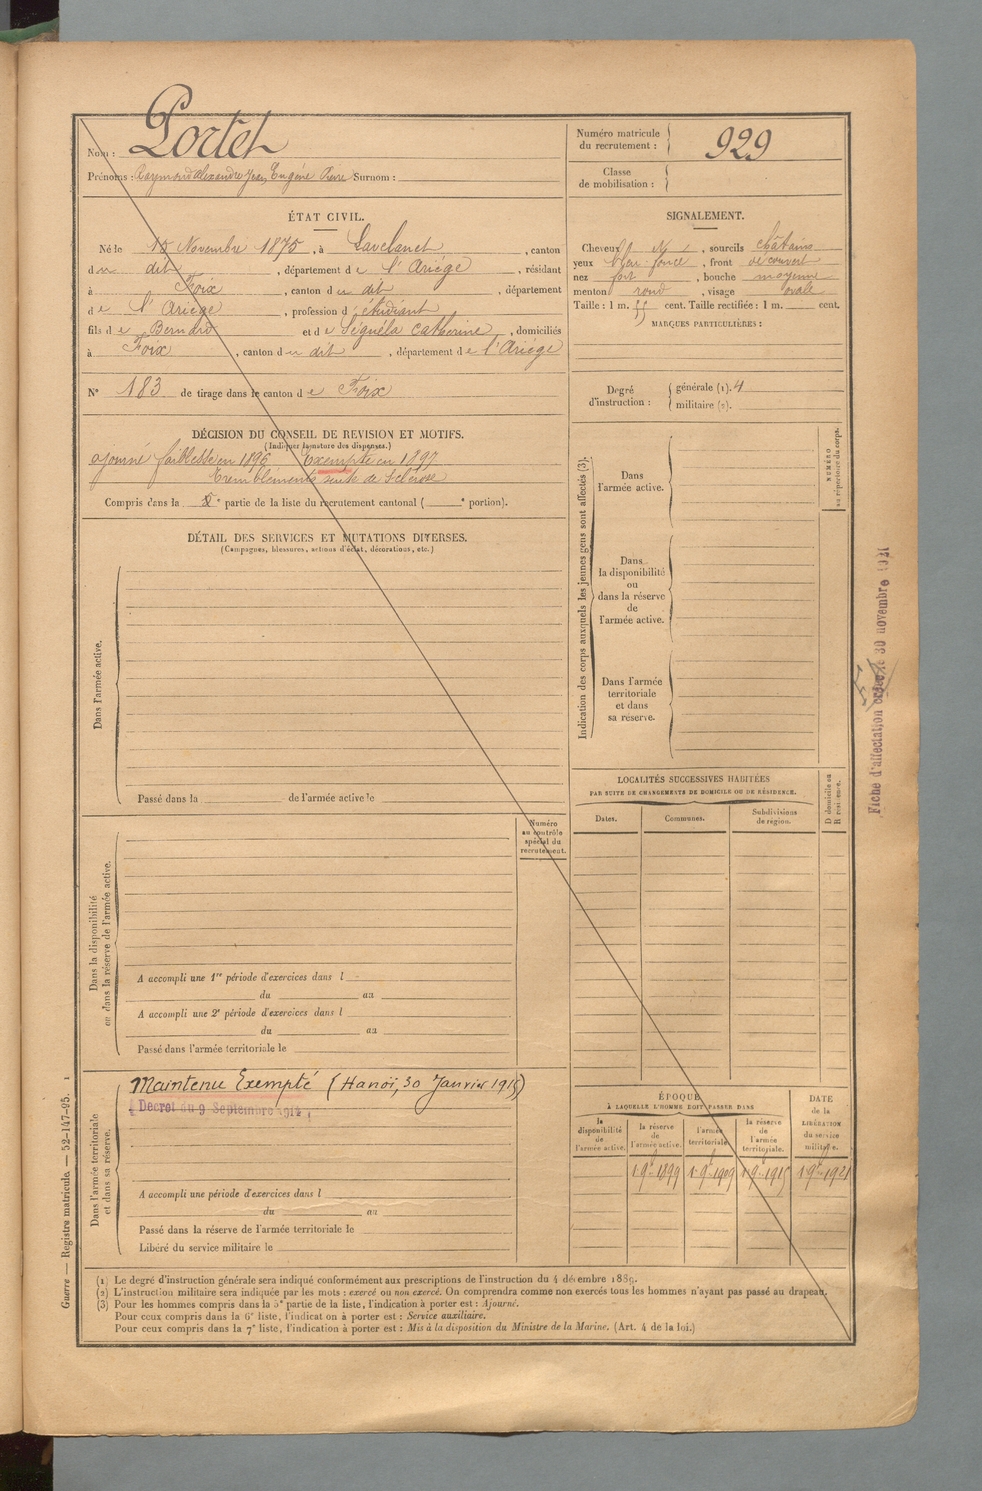 Nom : Portet
Prénoms : Raymond Alexandre Jean Eugène Pierre Surnom :
Numéro matricule du recrutement : 929
Classe de mobilisation :
ÉTAT CIVIL.
Né le 15 Novembre 1875, à Lavelanet, canton
du dit, département de l'Ariège, résidant
à Foix, canton du dit, département
de l'Ariège, profession d'étudiant
fils de Bernard et de Séguéla Catherine, domiciliés
à Foix, canton du dit, département de l'Ariège
N° 183 de tirage dans le canton de Foix
SIGNALEMENT.
Cheveux N, sourcils châtains
yeux bleu foncé, front découvert
nez fort, bouche moyenne
menton rond, visage ovale
Taille : 1 m. 55 cent. Taille rectifiée : 1 m. cent.
MARQUES PARTICULIÈRES :
Degré d'instruction : générale (1). 4
militaire (2).
DÉCISION DU CONSEIL DE REVISION ET MOTIFS.
(Indiquer la nature des dispenses.)
ajourné faiblesse en 1896 Exempté en 1897
Tremblements suite de Sclérose
Compris dans la 5e partie de la liste du recrutement cantonal ( e portion).
DÉTAIL DES SERVICES ET MUTATIONS DIVERSES.
(Campagnes, blessures, actions d'éclat, décorations, etc.)
Dans l'armée active.
Passé dans la de l'armée active le
Numéro au contrôle spécial du recrutement.
Dans la disponibilité ou dans la réserve de l'armée active.
A accompli une 1re période d'exercices dans l
du au
A accompli une 2e période d'exercices dans l
du au
Passé dans l'armée territoriale le
Dans l'armée territoriale et dans sa réserve.
Maintenu Exempté (Hanoï, 30 Janvier 1915)
Décret du 9 Septembre 1914
A accompli une période d'exercices dans l
du au
Passé dans la réserve de l'armée territoriale le
Libéré du service militaire le
Indication des corps auxquels les jeunes gens sont affectés (3).
Dans l'armée active.
Dans la disponibilité ou dans la réserve de l'armée active.
Dans l'armée territoriale et dans sa réserve.
NUMÉRO au répertoire du corps.
LOCALITÉS SUCCESSIVES HABITÉES
PAR SUITE DE CHANGEMENTS DE DOMICILE OU DE RÉSIDENCE.
Dates.
Communes.
Subdivisions de région.
D domicile ou R résidence.
ÉPOQUE
À LAQUELLE L'HOMME DOIT PASSER DANS
la disponibilité de l'armée active.
la réserve de l'armée active.
l'armée territoriale.
la réserve de l'armée territoriale.
DATE de la LIBÉRATION du service militaire.
1 9bre 1899
1 9bre 1909
1 9bre 1915
1 9bre 1921
Fiche d'affectation créée le 30 novembre 1921
(1) Le degré d'instruction générale sera indiqué conformément aux prescriptions de l'instruction du 4 décembre 1889.
(2) L'instruction militaire sera indiquée par les mots : exercé ou non exercé. On comprendra comme non exercés tous les hommes n'ayant pas passé au drapeau.
(3) Pour les hommes compris dans la 5e partie de la liste, l'indication à porter est : Ajourné.
Pour ceux compris dans la 6e liste, l'indication à porter est : Service auxiliaire.
Pour ceux compris dans la 7e liste, l'indication à porter est : Mis à la disposition du Ministre de la Marine. (Art. 4 de la loi.)
Guerre — Registre matricule. — 52-147-95. 1